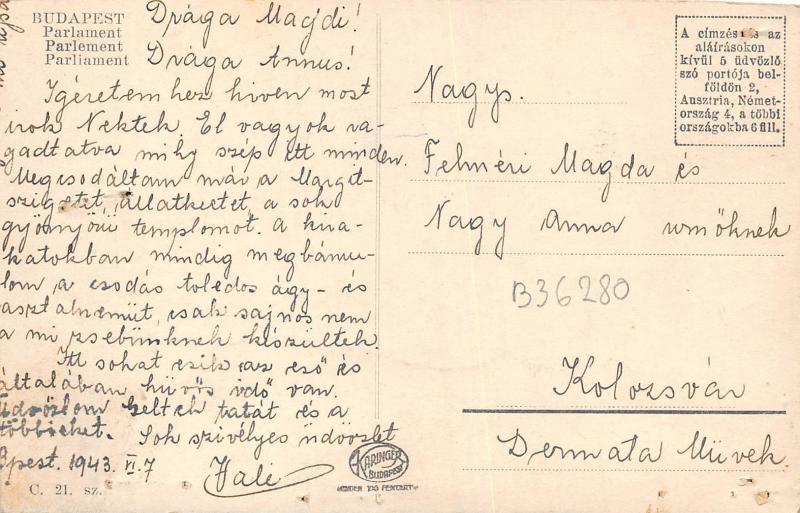 BUDAPEST
Parlament
Parlement
Parliament
Drága Magdi!
Drága Annus!
Igéretemhez hiven most
irok Nektek. El vagyok ra-
gadtatva mily szép itt minden.
Megcsodáltam már a Margit-
szigetet, állatkertet, a sok
gyönyörű templomot. A kira-
katokban mindig megbámu-
lom a csodás toledos ágy- és
asztalneműt, csak sajnos nem
a mi zsebünknek készültek.
Itt sokat esik az eső és
általában hűvös idő van.
Üdvözlom tatát és a
többieket. Sok szivélyes üdvözlet
Bpest. 1943. VI. 7 Vali
C. 21. sz.
KARINGER
BUDAPEST
A címzés és az
aláírásokon
kívül 5 üdvözlő
szó portója bel-
földön 2,
Ausztria, Német-
ország 4, a többi
országokba 6 fill.
Nagys.
Felméri Magda és
Nagy Anna urnőknek
B36280
Kolozsvár
Dermata Művek